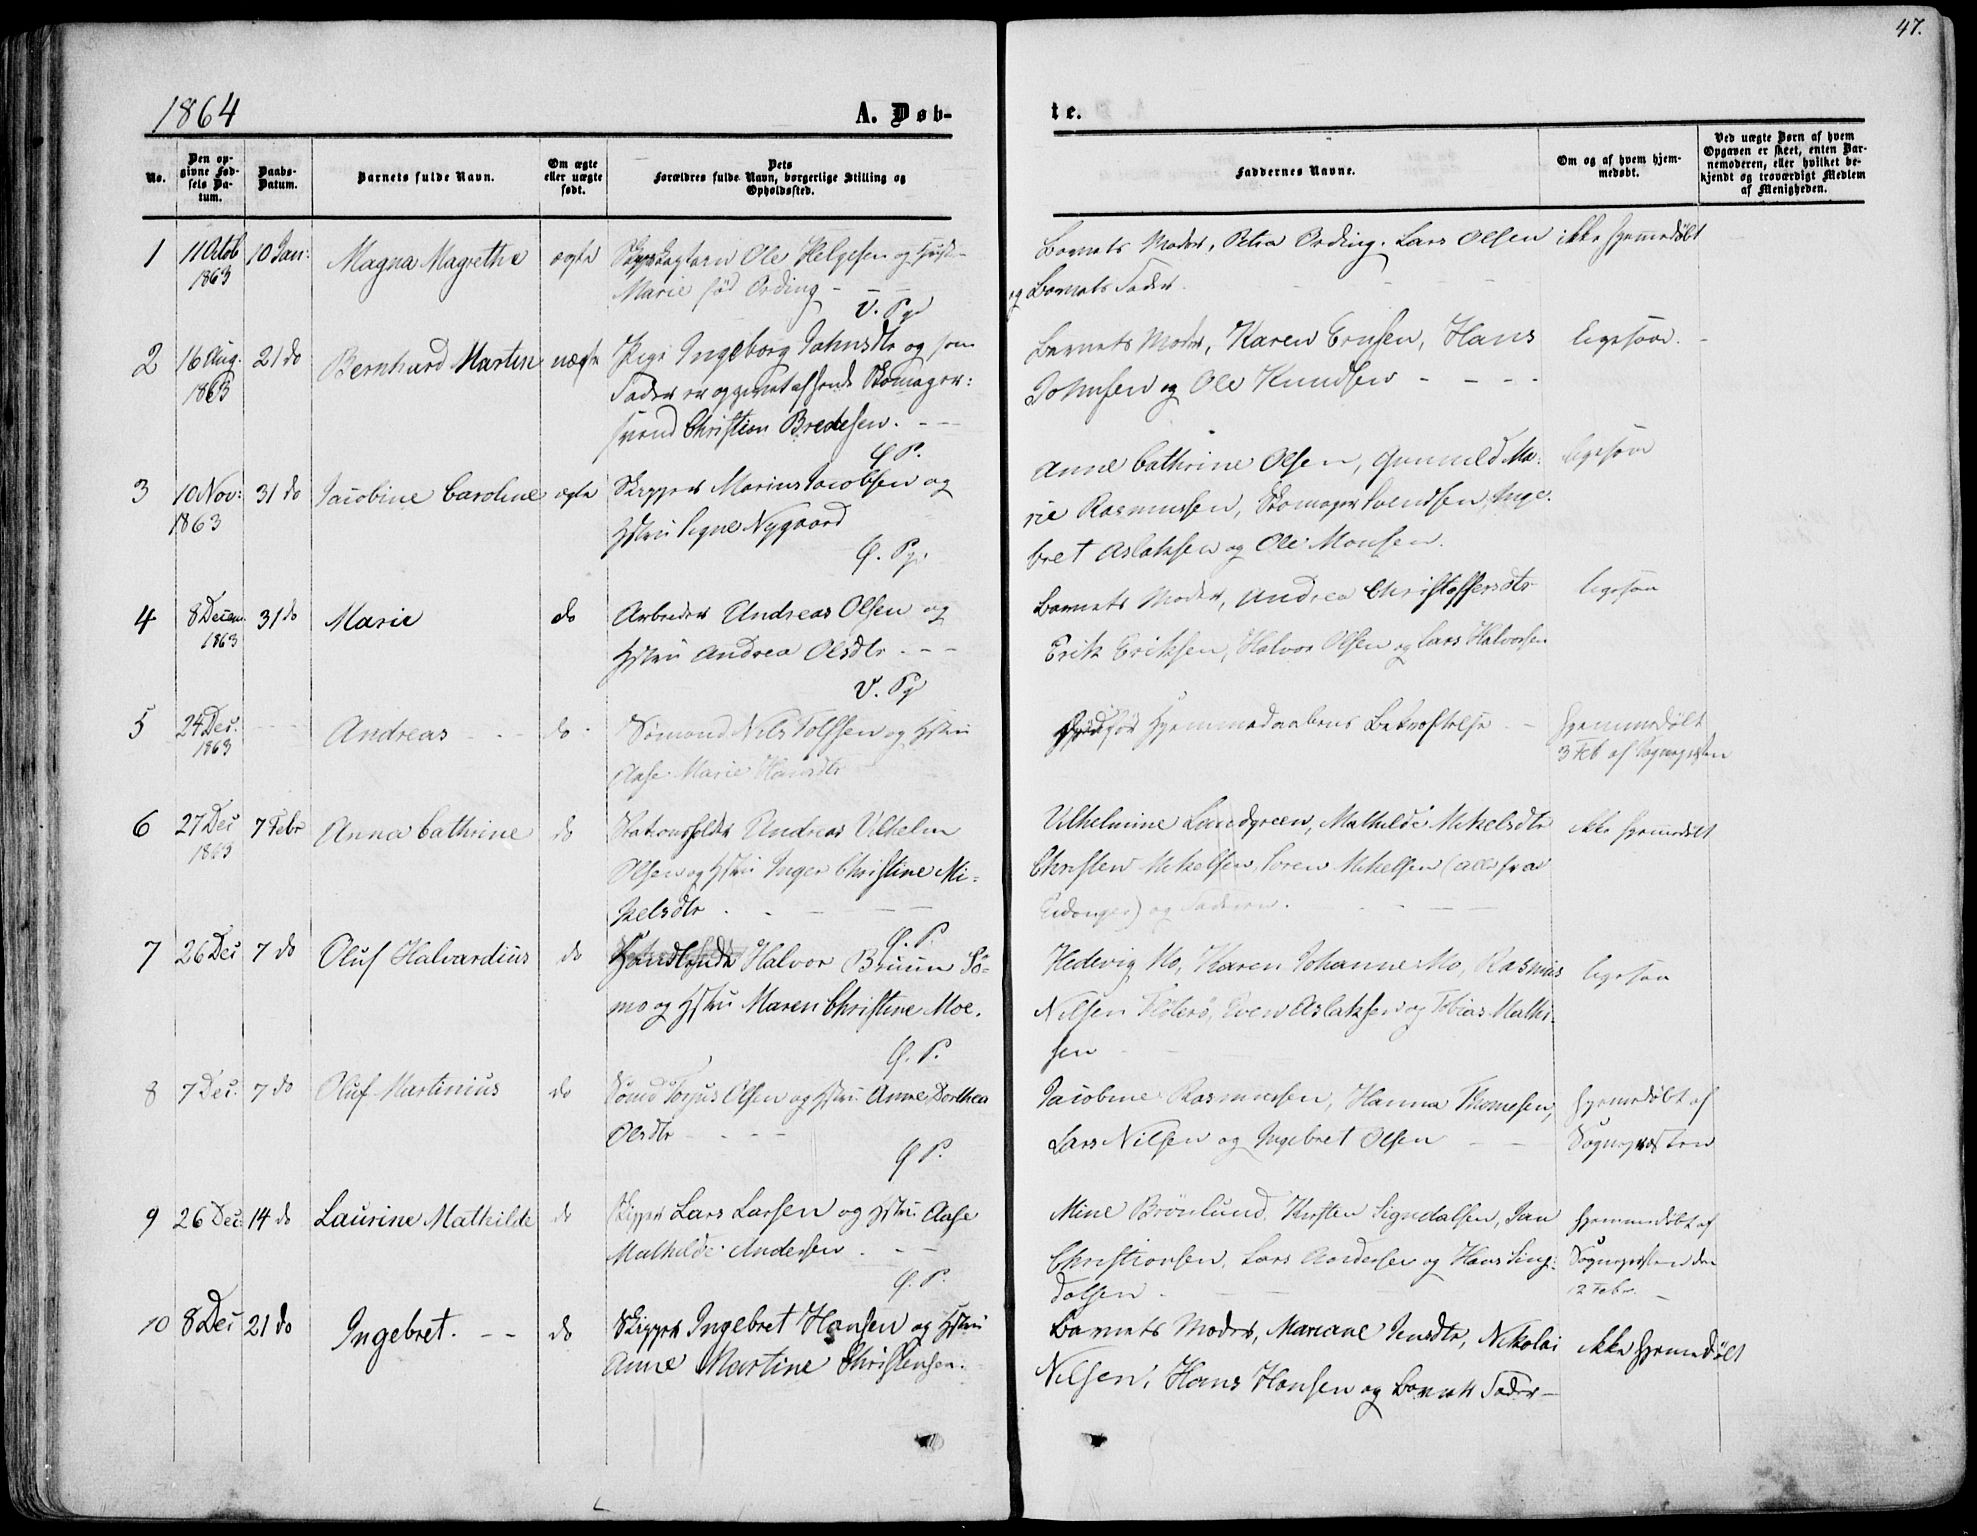 47.
1864
A. Døb-
te.
No.
Den op-
givne Fød-
sels Da-
tum.
Daabs-
Datum.
Barnets fulde Navn.
Om ægte
eller uægte
født.
Dets
Forældres fulde Navn, borgerlige Stilling og
Opholdssted.
Faddernes Navne.
Om og af hvem hjem-
medøbt.
Ved uægte Børn af hvem
Opgaven er skeet, enten Bar-
nemoderen, eller hvilket be-
kjendt og troværdigt Medlem
af Menigheden.
1
11 Octob
1863
10 Jan:
Magna Magrethe
ægte
Ole Helgesen og
Marie fød Ording
V. Pg
Barnets Moder, Petra Ording, Lars Olsen
og Barnets Fader.
ikke hjemmedøbt
2
16 Aug.
1863
21 do
Bernhard Martin
uægte
Pige Ingeborg Johnsdtr og som
Fader er opgivet Skomager-
svend Christian Bredesen.
Ø P.
Barnets Moder, Karen Ernsen, Hans
Johnsen og Ole Knudsen
ligesaa.
3
10 Nov:
1863
31 do
Jacobine Caroline
ægte
Skipper Marius Jacobsen og
Hstru Signe Nygaard
Ø. Pg.
Anne Cathrine Olsen, Gunnild Ma-
rie Rasmussen, Skomager Svendsen, Inge-
bret Aslaksen og Ole Monsen.
ligesaa
4
8 Decem
1863
31 do
Marie
do
Arbeider Andreas Olsen og
Hstru Andrea Olsdtr
V. Pg
Barnets Moder, Andrea Christoffersdtr
Erik Eriksen, Halvor Olsen og Lars Halvorsen
ligesaa
5
24 Dec.
1863
Andreas
do
Sømand Nils Tolfsen og Hstru
Aase Marie Hansdtr
Død før Hjemmedaabens Bekræftelse
hjemmedøbt
3 Feb af Sognepresten
6
27 Dec
1863
7 Febr
Anna Cathrine
do
Stationsholder Andreas Vilhelm
Olsen og Hstru Inger Christine Mi-
kelsdtr
Ø. P.
Vilhelmine Landgreen, Mathilde Mikelsdtr
Christen Mikelsen, Søren Mikelsen (alle fra
Eidanger) og Faderen.
ikke hjemmedøbt
7
26 Dec
7 do
Oluf Halvardius
do
Halvor Bruun Sø-
mo og Hstru Maren Christine Moe.
Ø. P.
Hedevig Mo, Karen Johanne Mo, Rasmus
Nilsen Fløterø, Even Aslaksen og Tobias Mathi-
sen
ligesaa
8
7 Dec.
7 do
Oluf Martinius
do
Sømd Torjus Olsen og Hstru Anne Dorthea
Olsdtr
Ø P.
Jacobine Rasmussen, Hanna Thomesen,
Lars Nilsen og Ingebret Olsen
hjemmedøbt af
Sognepresten
9
26 Dec.
14 do
Laurine Mathilde
do
Skipper Lars Larsen og Hstru Aase
Mathilde Andersen
Ø. P.
Mine Brönlund, Kirsten Signdalsen, Jan
Christiansen, Lars Andersen og Hans Sing-
dalsen
hjemmedøbt af
Sognepresten den
12 Febr.
10
8 Dec
21 do
Ingebret.
do
Skipper Ingebret Hansen og Hstru
Anne Martine Christensen.
Barnets Moder, Mariane Jensdtr, Nikolai
Nilsen, Hans Hansen og Barnets Fader
ikke hjemmedøbt